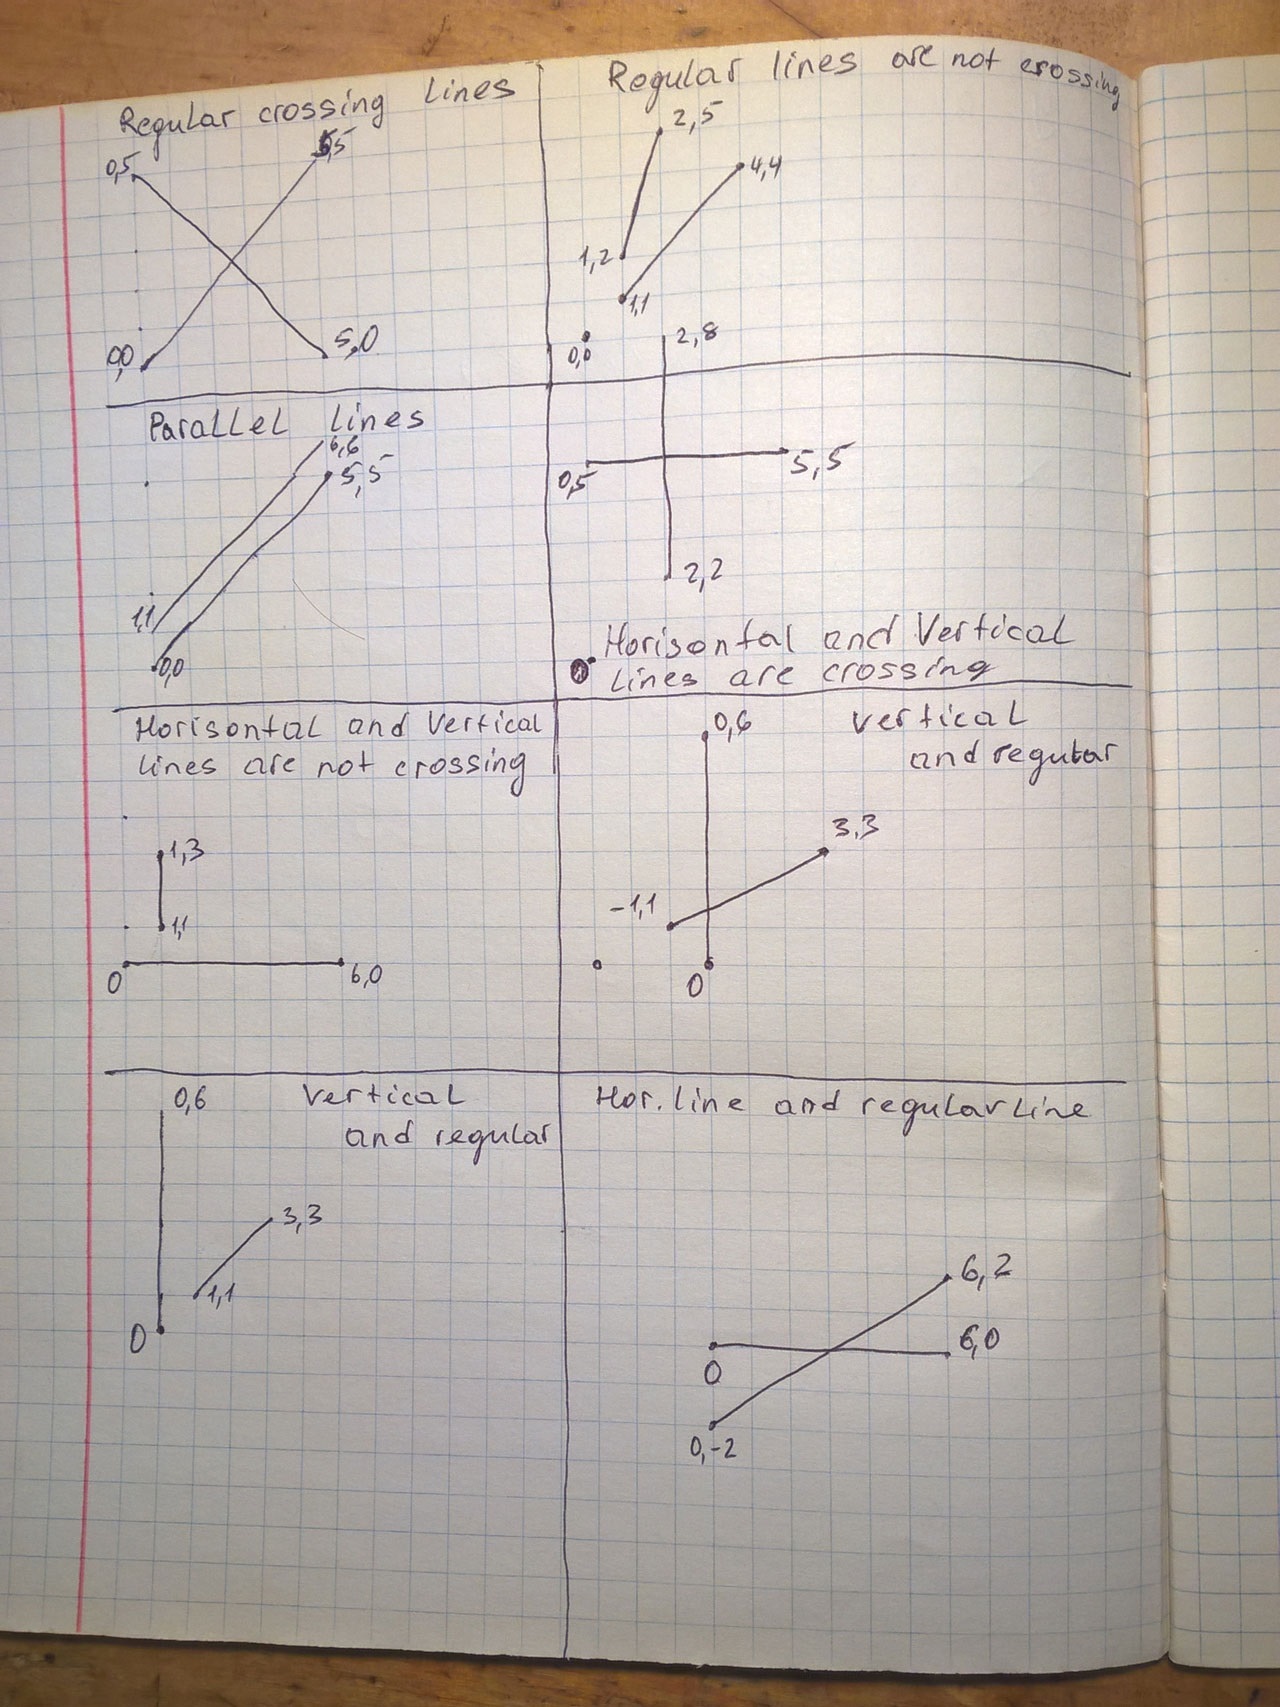 Regular crossing lines
0,5
5,5
0,0
5,0
Regular lines are not crossing
2,5
4,4
1,2
1,1
0,0
Parallel lines
6,6
5,5
1,1
0,0
2,8
0,5
5,5
2,2
Horisontal and Vertical
lines are crossing
Horisontal and Vertical
lines are not crossing
1,3
1,1
0
6,0
Vertical
and regular
0,6
3,3
-1,1
0
Vertical
and regular
0,6
3,3
1,1
0
Hor. line and regular line
6,2
6,0
0
0,-2